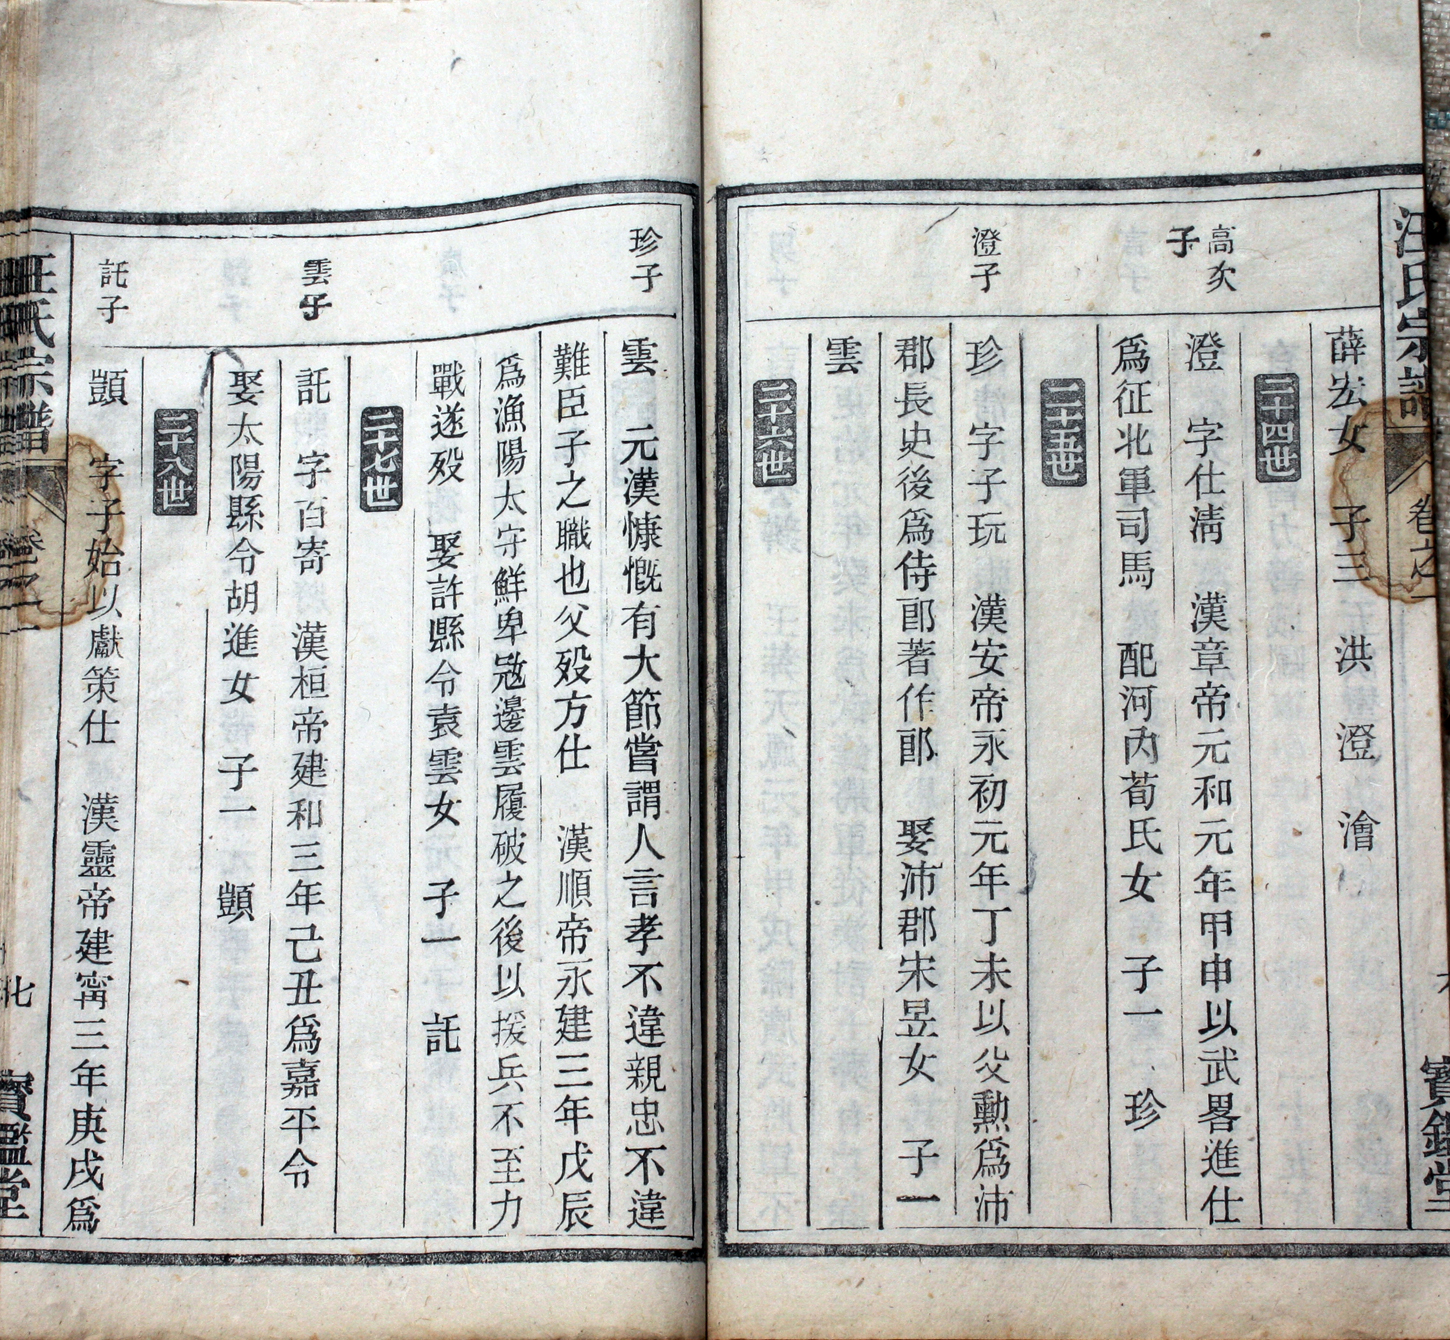 汪氏宗譜 卷之一 寶鑑堂
薛宏女 子三 洪 澄 澮
二十四世
高次
子
澄 字仕清 漢章帝元和元年甲申以武畧進仕
爲征北軍司馬 配河內荀氏女 子一 珍
二十五世
澄子
珍 字子玩 漢安帝永初元年丁未以父勳爲沛
郡長史後爲侍郎著作郎 娶沛郡宋昱女 子一
雲
二十六世
珍子
雲 元漢慷慨有大節嘗謂人言孝不違親忠不違
難臣子之職也父歿方仕 漢順帝永建三年戊辰
爲漁陽太守鮮卑宼邊雲履破之後以援兵不至力
戰遂歿 娶許縣令袁雲女 子一 託
二十七世
雲子
託 字百寄 漢桓帝建和三年己丑爲嘉平令
娶太陽縣令胡進女 子一 顗
二十八世
託子
顗 字子始以獻策仕 漢靈帝建甯三年庚戌爲
汪氏宗譜 卷之一 寶鑑堂